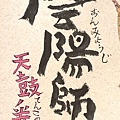 陰陽師
おんみょうじ
天鼓ノ
てんこの